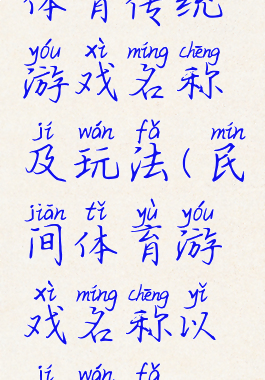 体育传统
yóu xì míng chēng
游戏名称
jí wán fǎ mín
及玩法(民
jiān tǐ yù yóu
间体育游
xì míng chēng yǐ
戏名称以
jí wán fǎ